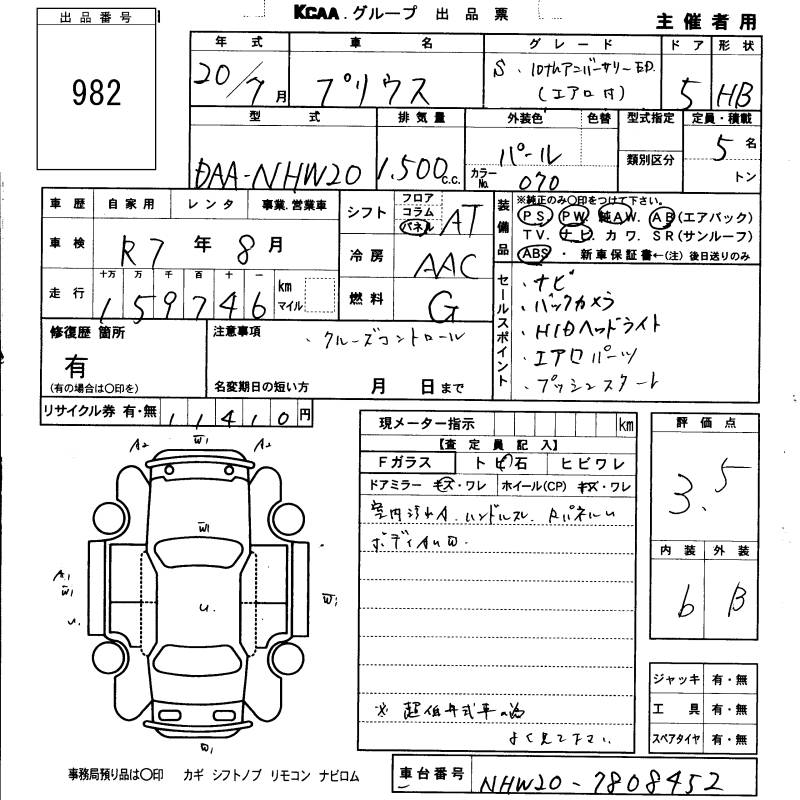 KCAA.グループ 出品票
主催者用
出品番号
982
年式 車名 グレード ドア 形状
20/7月 プリウス S.10thアニバーサリーED. (エアロ付) 5 HB
型式 排気量 外装色 色替 型式指定 定員・積載
DAA-NHW20 1,500c.c. パール 類別区分 5名
カラーNo. 070 トン
車歴 自家用 レンタ 事業.営業車
シフト フロア コラム パネル AT
車検 R7年8月
冷房 AAC
走行 十万 万 千 百 十 一 km マイル
159746
燃料 G
装備品 ※純正のみ〇印をつけて下さい。
PS. PW. 純AW. AB(エアバック)
TV. ナビ. カワ. SR(サンルーフ)
ABS ・ 新車保証書←(注)後日送りのみ
セールスポイント
・ナビ
・バックカメラ
・HIDヘッドライト
・エアロパーツ
・プッシュスタート
修復歴 箇所
有
(有の場合は〇印を)
注意事項 ・クルーズコントロール
名変期日の短い方 月 日まで
リサイクル券 有・無 11410円
現メーター指示 km
【査定員記入】
Fガラス トビ石 ヒビワレ
ドアミラー キズ・ワレ ホイール(CP) キズ・ワレ
室内汚れA.ハンドルスレ.
ボディAUD.
よく見て下さい.
評価点
3.5
内装 外装
b B
ジャッキ 有・無
工具 有・無
スペアタイヤ 有・無
A2 W1 A2
W1
A1
W1
U.
U.
W1
事務局預り品は〇印 カギ シフトノブ リモコン ナビロム
車台番号 NHW20-7808452